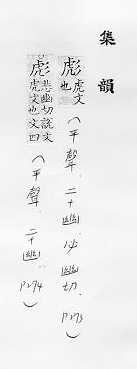 集韻
彪虎文也（平聲．二十幽．必幽切．P273）
彪悲幽切說文虎文也文四（平聲．二十幽．P274）